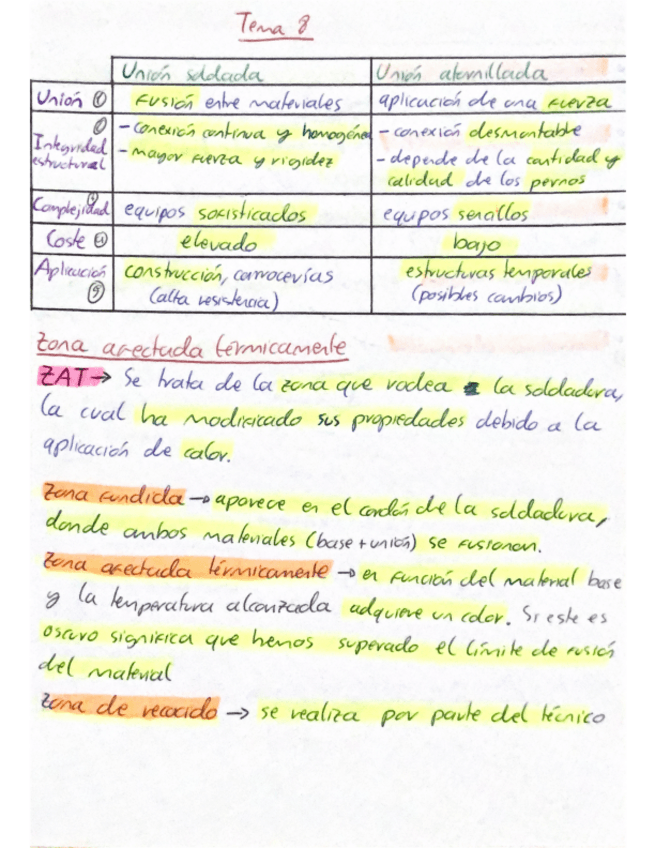 Tema 8
Unión soldada Unión atornillada
Unión ① Fusión entre materiales aplicación de una fuerza
Integridad estructural - conexión continua y homogénea - conexión desmontable
- mayor fuerza y rigidez - depende de la cantidad y
calidad de los pernos
Complejidad equipos sofisticados equipos sencillos
Coste elevado bajo
Aplicación construcción, carrocerías estructuras temporales
(alta resistencia) (posibles cambios)
Zona afectada térmicamente
ZAT → Se trata de la zona que rodea la soldadura,
la cual ha modificado sus propiedades debido a la
aplicación de calor.
Zona fundida → aparece en el cordón de la soldadura,
donde ambos materiales (base + unión) se fusionan.
Zona afectada térmicamente → en función del material base
y la temperatura alcanzada adquiere un color. Si este es
oscuro significa que hemos superado el límite de fusión
del material
Zona de recocido → se realiza por parte del técnico